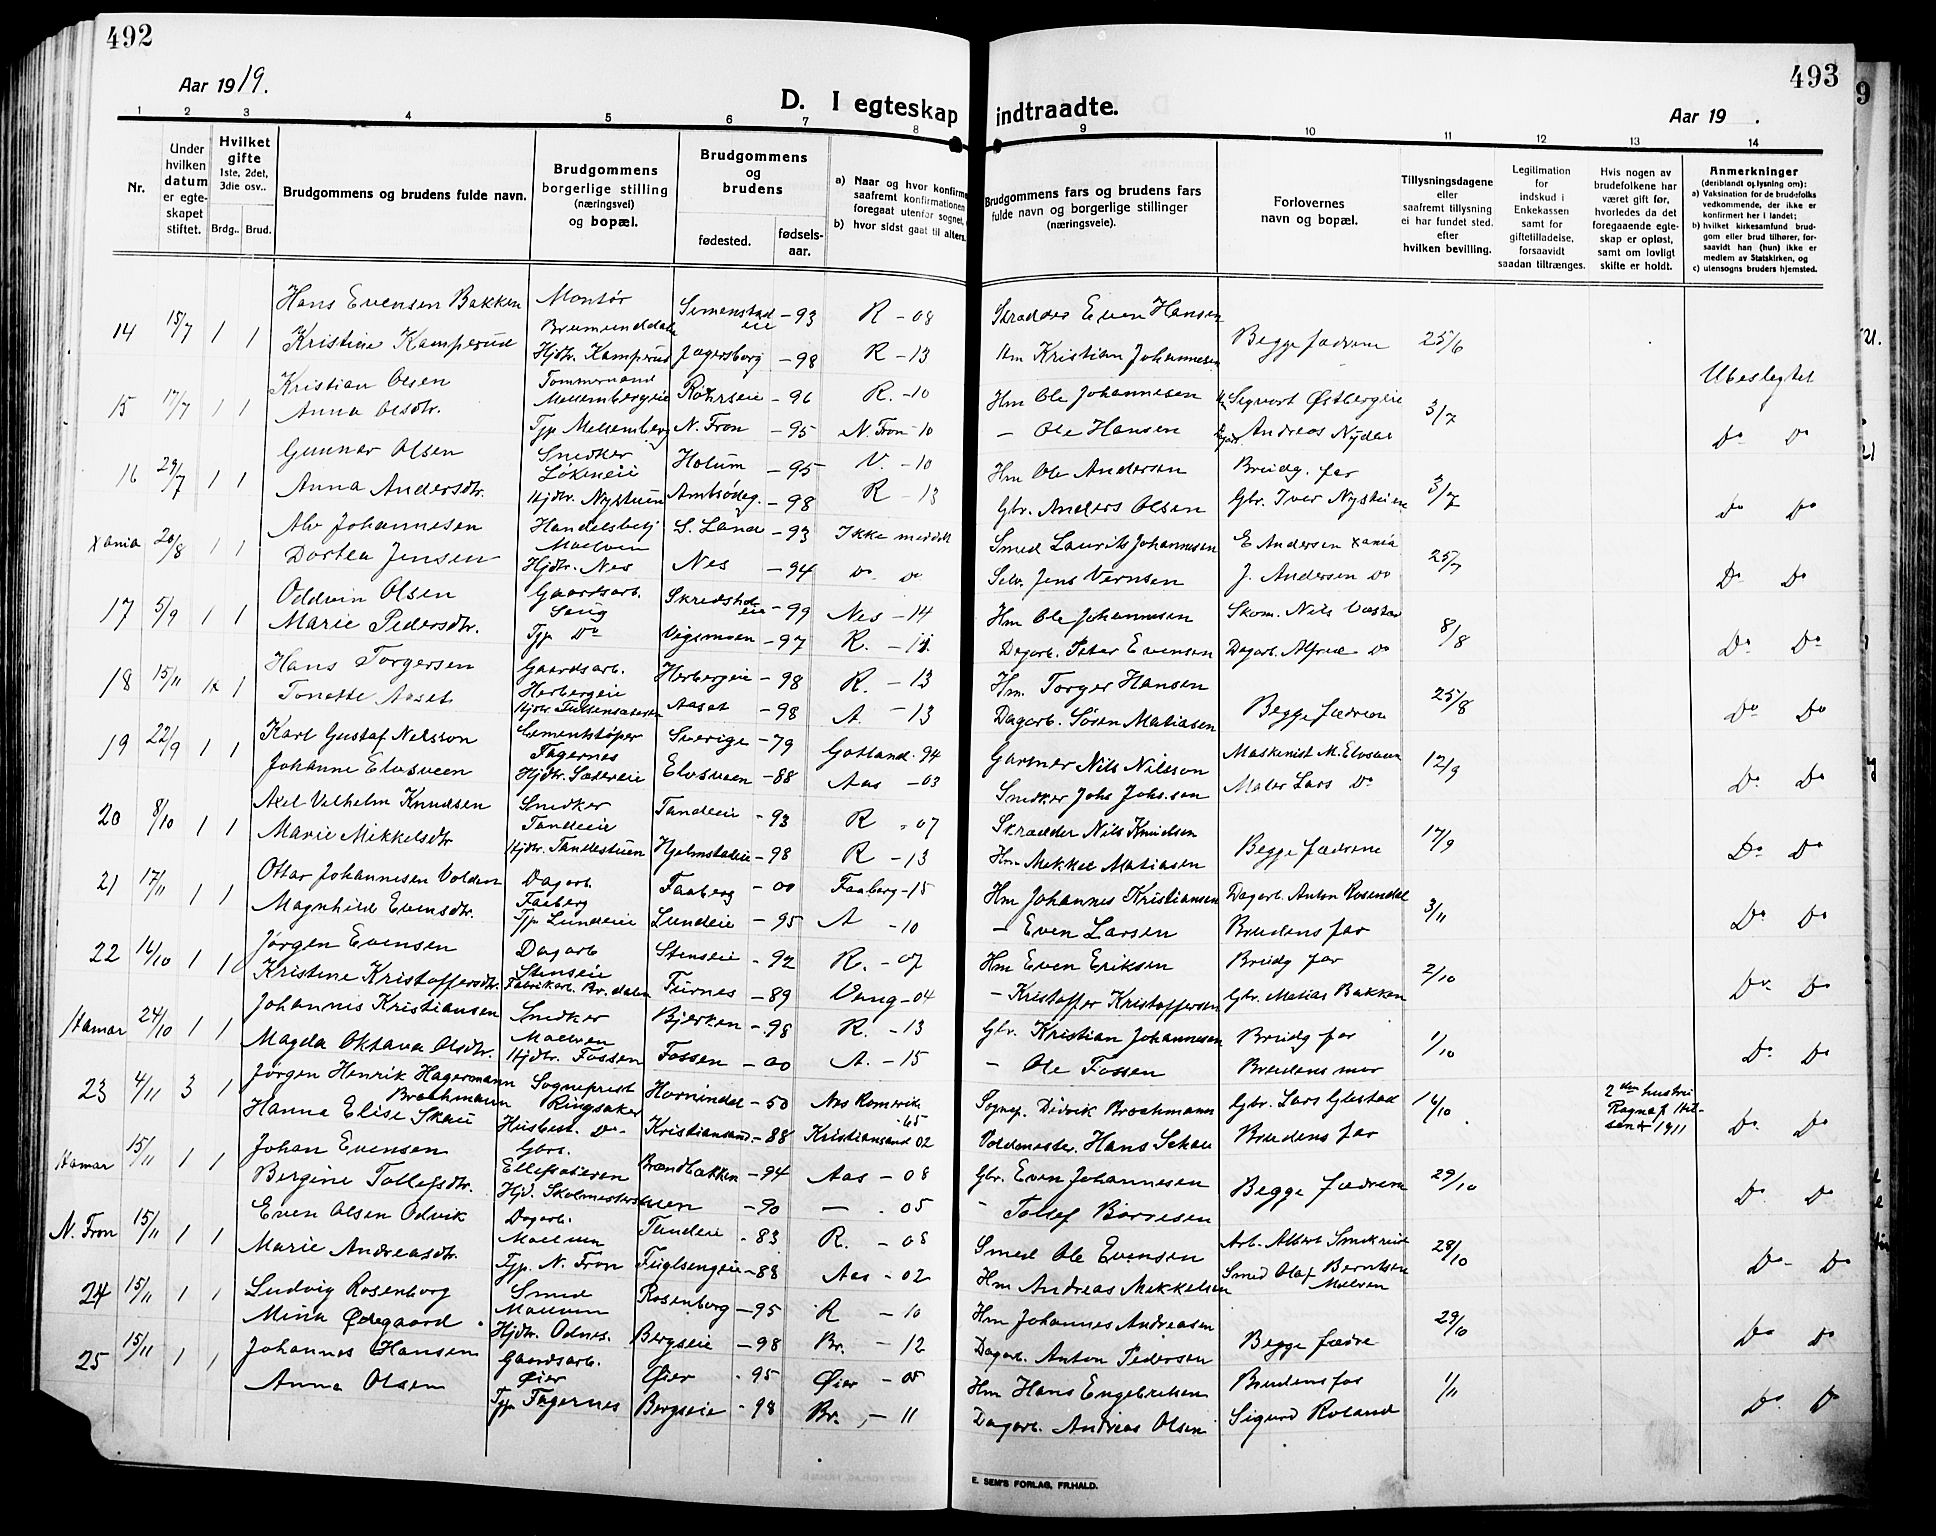 492
Aar 1919.
D. I egteskap
1 2 3 4 5 6 7 8
Nr.
Under hvilken datum er egteskapet stiftet.
Hvilket gifte 1ste, 2det, 3die osv..
Brdg.. Brud.
Brudgommens og brudens fulde navn.
Brudgommens borgerlige stilling (næringsvei) og bopæl.
Brudgommens og brudens
fødested.
fødsels-aar.
a) Naar og hvor konfirm
saafremt konfirmationen
foregaat utenfor sognet,
b) hvor sidst gaat til alters.
14 15/7 1 1 Hans Evensen Bakken Montør Brumunddal Simenstadeie -93 R -08
Kristine Kamperud Hjdtr. Kamperud Jægersborg -98 R -13
15 17/7 1 1 Kristian Olsen Tommermand -96 R. -10
Anna Olsdtr. N. Fron -95 N. Fron -10
16 29/7 1 1 Gunnar Olsen Snedker Holum -95 V. -10
Anna Andersdtr. Hjdtr. Nystuen -98 R -13
Xania 20/8 1 1 Alv Johannesen Moelven S. Land -93 Ikke meddelt
Dortea Jensen Hjdtr. Nes Nes -94 Do Do
17 5/9 1 1 Oddvin Olsen Gaardsarb. -99 Nes -14
Marie Pedersdtr. Do Vigsmoen -97 R.
18 15/11 1 Hans Torgersen Gaardsarb. Herbergeie Herbergeie -98 R. -13
Tonette Aaset Aaset -98 A. -13
19 22/9 1 1 Karl Gustaf Nelsson Cementstøper Fagernes Sverige -79 Gotland -94
Johanne Elvsveen Hjdtr. Sætereie Elvsveen -88 Aas -03
20 8/10 1 1 Axel Vilhelm Knudsen Snedker Tandeeie Tandeeie -93 R -07
Marie Mikkelsdtr Hjdtr. Tandestuen Hjelmstadeie -98 R -13
21 17/11 1 1 Ottar Johannesen Volden Dagarb. Faaberg Faaberg -00 Faaberg -15
Magnhild Evensdtr. Tjp. Lundeie Lundeie -95 A -10
22 16/10 1 1 Jørgen Evensen Dagarb Stenseie Stenseie -92 R. -07
Kristine Kristoffersdtr. Fabrikarb. Br.dalen Furnes -89 Vang -04
Hamar 24/10 1 1 Johannes Kristiansen Snedker Moelven Bjerken -98 R. -13
Magda Oktava Olsdtr. Hjdtr. Fossen Fossen -00 A. -15
23 4/11 3 1 Jørgen Henrik Hagermann Brochmann Sogneprest Ringsaker Hornindal -50 Nes Romerike 65
Hanna Elise Skau Husbest. Do Kristiansand -88 Kristiansand 02
Hamar 15/11 1 1 Johan Evensen Gbr. Brændbakken -94 Aas -08
Bergine Tollefsdtr. Hjd. Skolmesterstuen -90 — 05
N. Fron 15/11 1 1 Even Olsen Odvik Dagarb. Moelven Tandeie -83 R. -08
Marie Andreasdtr. Tjp. N. Fron Fuglsengeie -88 Aas -02
24 15/11 1 1 Ludvig Rosenborg Smed Moelven Rosenborg -95 R -10
Mina Ødegaard Hjdtr. Odnes. Bergseie -98 Br. -12
25 15/11 1 1 Johannes Hansen Gaardsarb. Øier Øier -95 Øier -05
Anna Olsen Tjp. Fagernes Bergseie -98 Br. -11
493
indtraadte.
Aar 19 .
9 10 11 12 13 14
Brudgommens fars og brudens fars
fulde navn og borgerlige stillinger
(næringsveie).
Forlovernes
navn og bopæl.
Tillysningsdagene
eller
saafremt tillysning
ei har fundet sted.
efter
hvilken bevilling.
Legitimation
for
indskud i
Enkekassen
samt for
giftetilladelse,
forsaavidt
saadan tiltrænges.
Hvis nogen av
brudefolkene har
været gift før,
hvorledes da det
foregaaende egte-
skap er opløst,
samt om lovligt
skifte er holdt.
Anmerkninger
(deriblandt oplysning om):
a) Vaksination for de brudefolks
vedkommende, der ikke er
konfirmert her i landet;
b) hvilket kirkesamfund brud-
gom eller brud tilhører, for-
saavidt han (hun) ikke er
medlem av Statskirken, og
c) utensogns bruders hjemsted.
Skrædder Even Hansen
Hm Kristian Johannesen Begge fædrene 25/6
Ubeslegtet
Hm Ole Johannesen Sigvart Østbergeie 3/7
— Ole Hansen Andreas Nydal Do Do
Hm Ole Andersen Brudg. far 3/7
Gbr. Anders Olsen Gbr. Iver Nystuen Do Do
Smed Laurits Johannesen E Andersen Xania 25/7
Selv. Jens Vernsen J. Andersen Do Do Do
Hm Ole Johannesen Skom. Nils 8/8
Dagarb. Peter Evensen Dagarb. Alfred Do Do Do
Hm. Torger Hansen 25/8
Dagarb. Søren Matiasen Begge fædrene Do Do
Gartner Nils Nilsson Maskinist M. Elvsveen 12/9
Snedker Johs Johs.sen Maler Lars Do Do Do
Skrædder Nils Knudsen 17/9
Hm Mekkel Matiasen Begge fædrene Do Do
Hm Johannes Kristiansen Dagarb. Anton Rosendal 3/11
— Even Larsen Brudens far Do Do
Hm Even Eriksen Brudg far 2/10
— Kristoffer Kristoffersen Gbr. Matias Bakken Do Do
Gbr. Kristian Johannesen Brudg far 1/10
— Ole Fossen Brudens mor Do Do
Sognep. Didvik Brochmann Gbr. Lars Glestad 16/10 2den hustru Ragna f. 1911
Hans Skau Brudens far Do Do
Gbr. Even Johannesen 29/10
— Tollef Borresen Begge fædrene Do Do
Smed Ole Evensen Arb. Albert Smikrud 28/10
Hm Andreas Mekkelsen Smed Olaf Berntsen Moelven Do Do
Hm Johannes Andreasen 29/10
Dagarb. Anton Pedersen Begge fædre Do Do
Hm Hans Engebretsen Brudens far 1/11
Dagarb. Andreas Olsen Sigurd Roland Do Do
E. SEM'S FORLAG, FR.HALD.